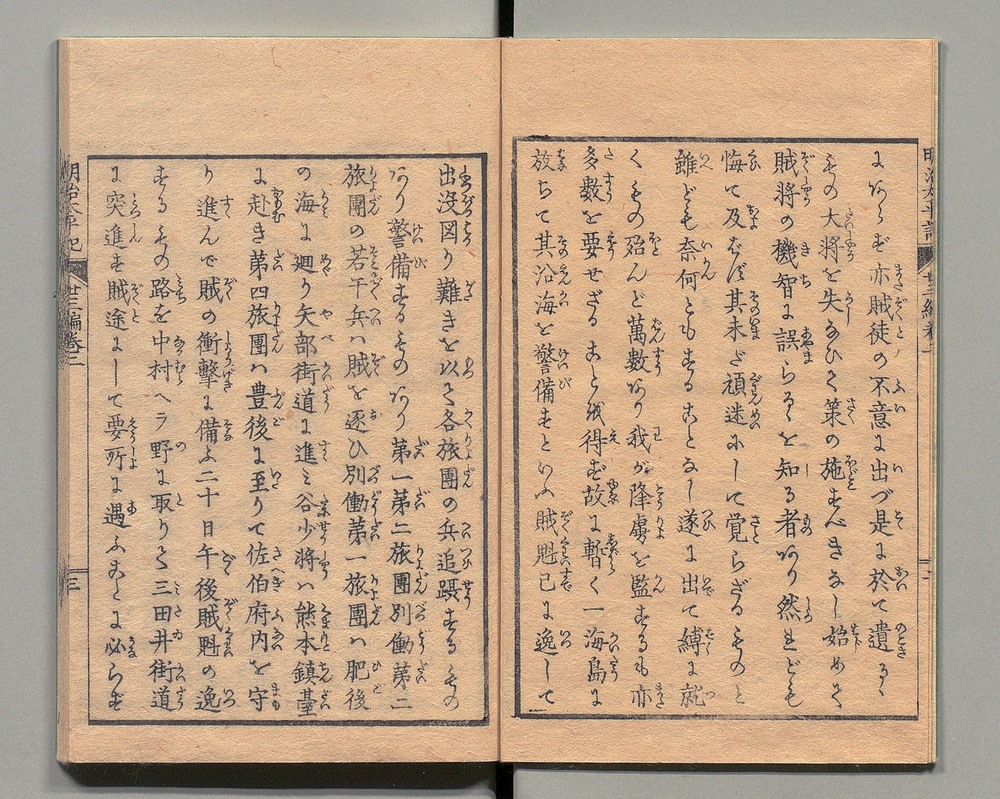 にあらず亦賊徒の不意に出づ是に於て遺る
其の大将を失なひて策の施すべきなし始めて
賊将の機智に誤らるゝを知る者あり然れども
悔て及ばず其未だ頑迷にして覚らざるものと
雖ども奈何ともすることなし遂に出て縛に就
くもの殆んど萬數あり我が降虜を監するも亦
多數を要せざることを得ず故に暫く一海島に
放ちて其沿海を警備すといふ賊魁已に逸して
明治太平記
廿三編巻二
出没図り難きを以て各旅團の兵追躡するもの
あり警備するものあり第一第二旅團別働第二
旅團の若干兵ハ賊を逐ひ別働第一旅團ハ肥後
の海に廻り矢部街道に進ミ谷少将ハ熊本鎮臺
に赴き第四旅團ハ豊後に至りて佐伯府内を守
り進んで賊の衝撃に備ふ二十日午後賊魁の逸
するもの路を中村ヘラ野に取りて三田井街道
に突進す賊途にして要所に遇ふことに必らず
明治太平記
廿三編巻二
三